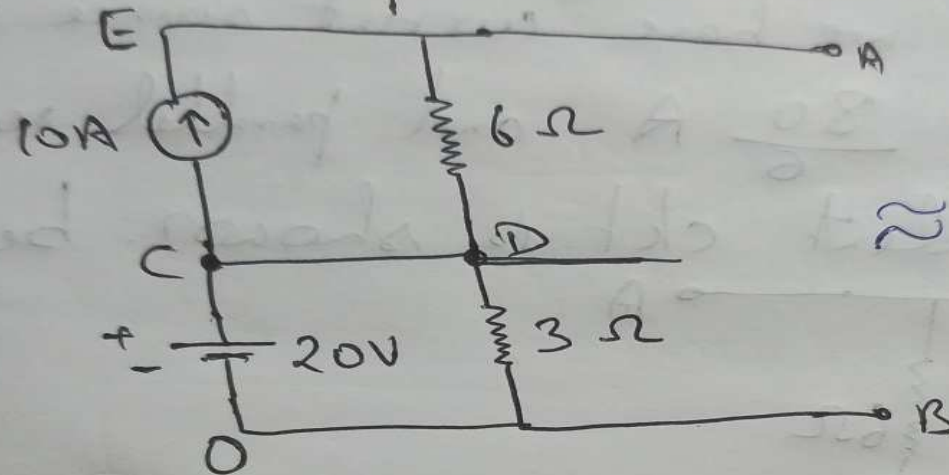 E
A
10A
6 Ω
≈
C
D
+
-
20V
3 Ω
B
O